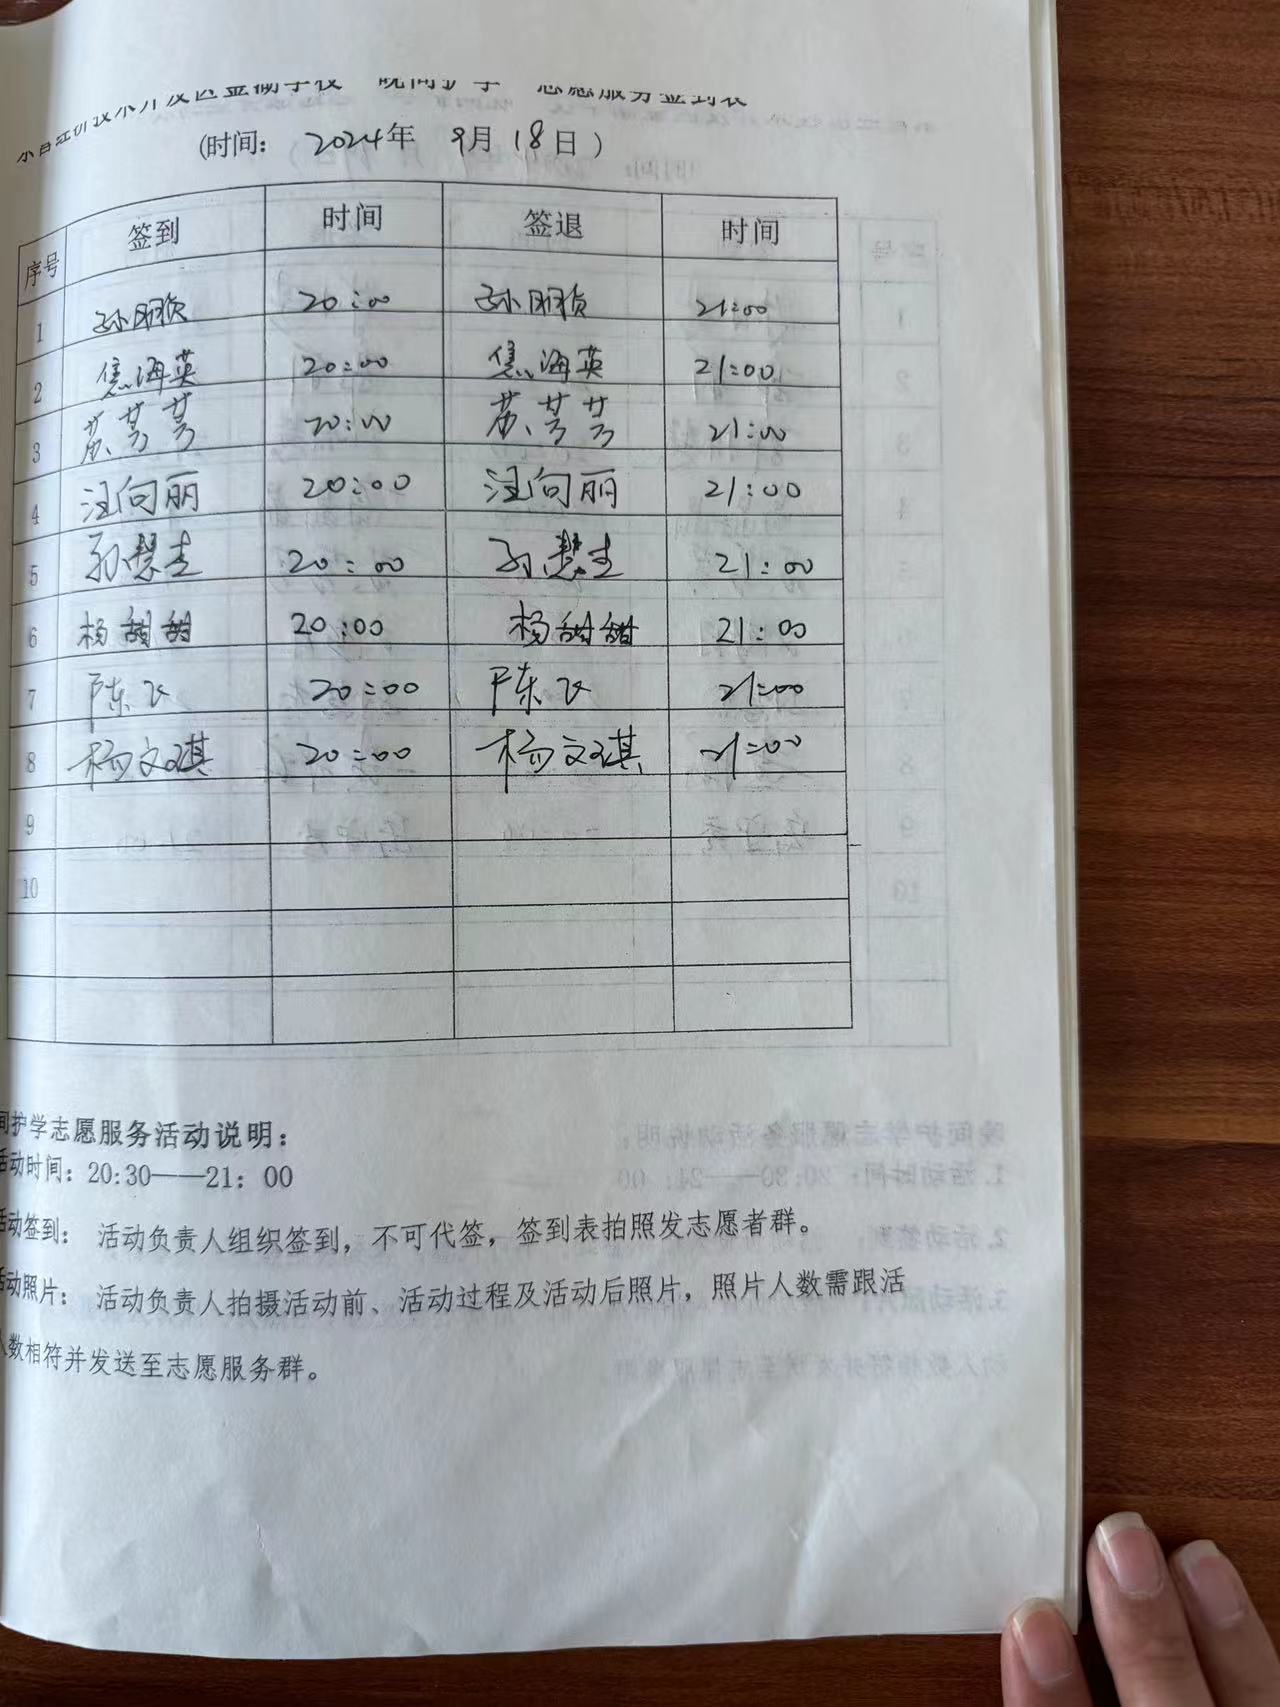 技术开发区金湖学校 晚间护学 志愿服务签到表
(时间: 2024年 9月18日)
序号 签到 时间 签退 时间
1 孙朋贞 20:00 孙朋贞 21:00
2 焦海英 20:00 焦海英 21:00
3 苏芳芳 20:00 苏芳芳 21:00
4 汪向丽 20:00 汪向丽 21:00
5 孙慧 20:00 孙慧 21:00
6 杨甜甜 20:00 杨甜甜 21:00
7 陈飞 20:00 陈飞 21:00
8 杨文琪 20:00 杨文琪 21:00
9
10
间护学志愿服务活动说明:
活动时间: 20:30——21: 00
活动签到: 活动负责人组织签到, 不可代签, 签到表拍照发志愿者群。
活动照片: 活动负责人拍摄活动前、活动过程及活动后照片, 照片人数需跟活
人数相符并发送至志愿服务群。